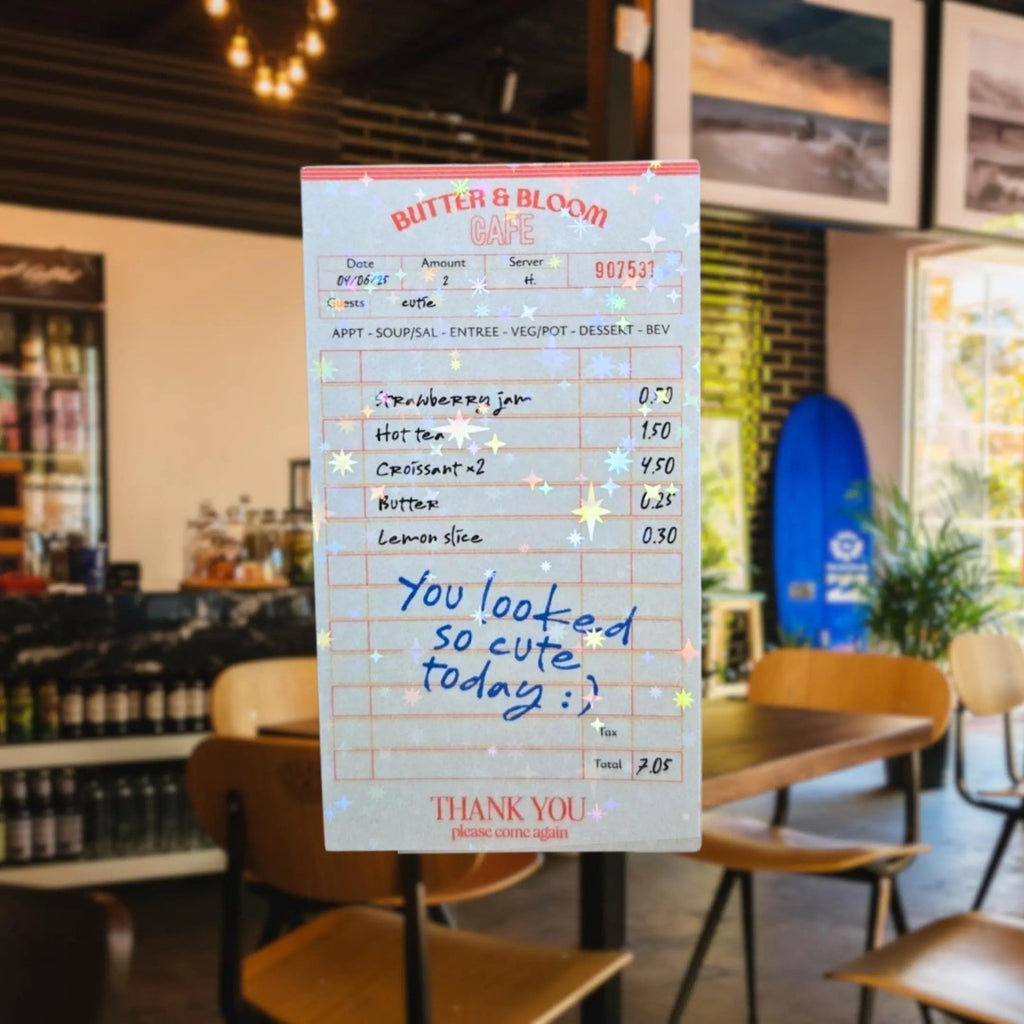 BUTTER & BLOOM
CAFE
Date Amount Server 907531
04/06/25 2 H.
Guests cutie
APPT - SOUP/SAL - ENTREE - VEG/POT - DESSERT - BEV
Strawberry jam 0.50
Hot tea 1.50
Croissant x2 4.50
Butter 0.25
Lemon slice 0.30
You looked
so cute
today :)
Tax
Total 7.05
THANK YOU
please come again